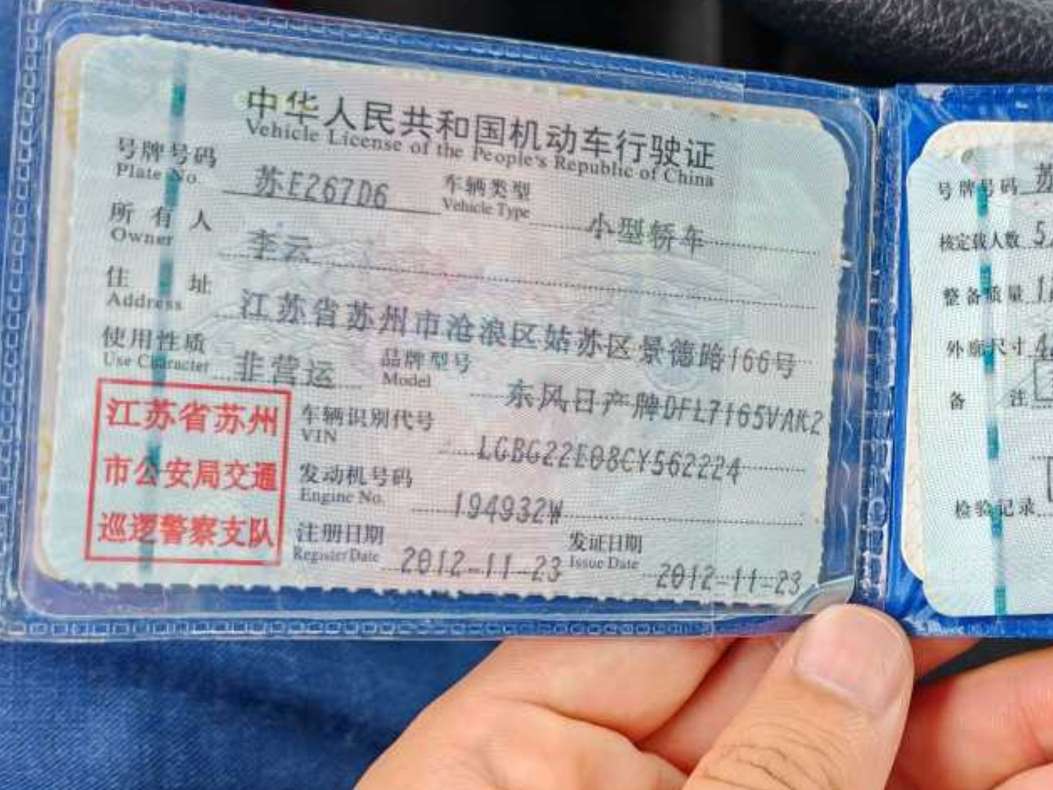 中华人民共和国机动车行驶证
Vehicle License of the People's Republic of China
号牌号码 苏E267D6 车辆类型 小型轿车
Plate No. Vehicle Type
所有人 李云
Owner
住址 江苏省苏州市沧浪区姑苏区景德路166号
Address
使用性质 非营运 品牌型号 东风日产牌DFL7165VAK2
Use Character Model
江苏省苏州
市公安局交通
巡逻警察支队
车辆识别代号 LGBG22E08CY562224
VIN
发动机号码 194932W
Engine No.
注册日期 2012-11-23 发证日期 2012-11-23
Register Date Issue Date
号牌号码 苏
核定载人数 5
整备质量 1
外廓尺寸 4
备注
检验记录